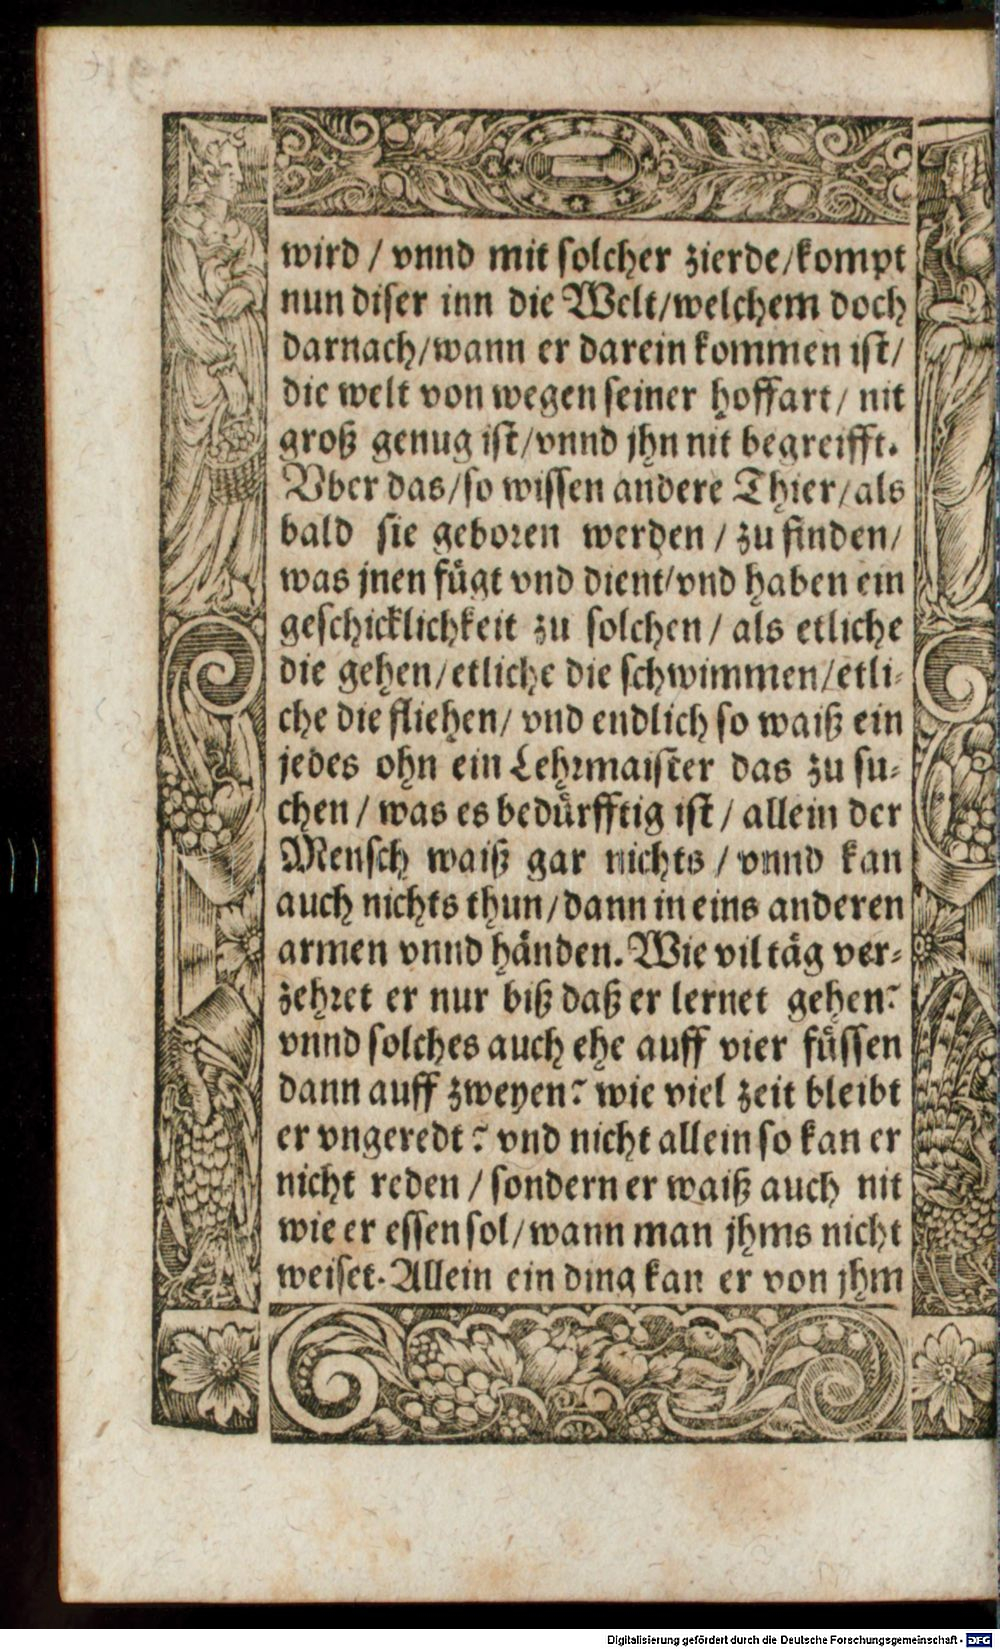 wird / vnnd mit solcher zierde/kompt
nun diser inn die Welt/welchem doch
darnach/wann er darein kommen ist/
die welt von wegen seiner hoffart/ nit
groß genug ist/vnnd jhn nit begreifft.
Vber das/so wissen andere Thier/als
bald sie geboren werden / zu finden/
was jnen fuͤgt vnd dient/vnd haben ein
geschicklichkeit zu solchen / als etliche
die gehen/etliche die schwimmen/etli-
che die fliehen/ vnd endlich so waiß ein
jedes ohn ein Lehrmaister das zu su-
chen / was es beduͤrfftig ist / allein der
Mensch waiß gar nichts / vnnd kan
auch nichts thun/dann in eins anderen
armen vnnd haͤnden. Wie vil taͤg ver-
zehret er nur biß daß er lernet gehen?
vnnd solches auch ehe auff vier fuͤssen
dann auff zweyen? wie viel zeit bleibt
er vngeredt? vnd nicht allein so kan er
nicht reden / sondern er waiß auch nit
wie er essen sol/wann man jhms nicht
weiset. Allein ein ding kan er von jhm
Digitalisierung gefördert durch die Deutsche Forschungsgemeinschaft - DFG